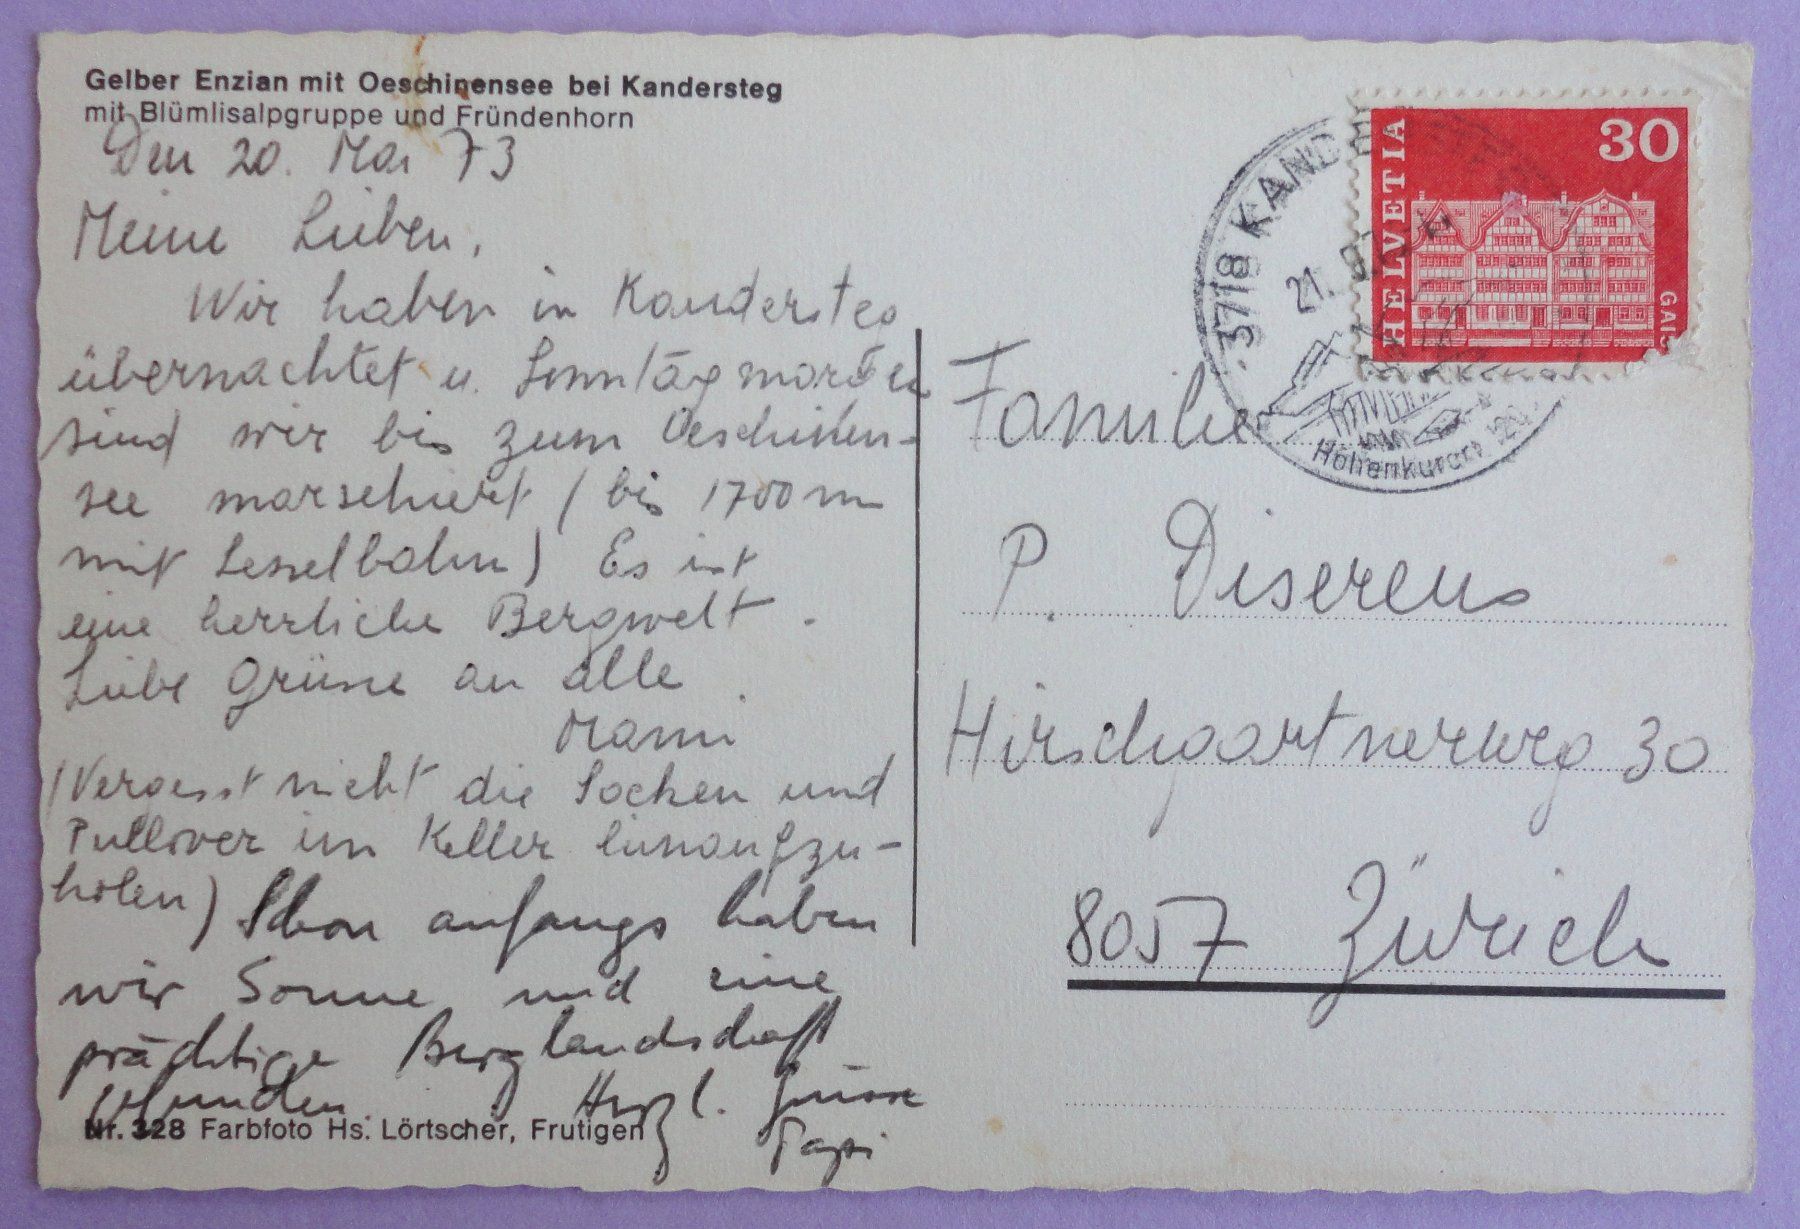 Gelber Enzian mit Oeschinensee bei Kandersteg
mit Blümlisalpgruppe und Fründenhorn
Den 20. Mai 73
Meine Lieben,
Wir haben in Kandersteg
übernachtet u. Sonntagmorgen
sind wir bis zum Oeschinen-
see marschiert (bis 1700 m
mit Sesselbahn) Es ist
eine herrliche Bergwelt.
Liebe Grüsse an alle.
Mami
(Vergesst nicht die Socken und
Pullover im Keller hinaufzu-
holen) Schon anfangs haben
wir Sonne und eine
prächtige Berglandschaft
gefunden. Herzl. Grüsse
Papi
Nr. 328 Farbfoto Hs. Lörtscher, Frutigen
HELVETIA
30
GAIS
3718 KANDE
21.
Höhenkurort
Familie
P. Diserens
Hirschgartnerweg 30
8057 Zürich